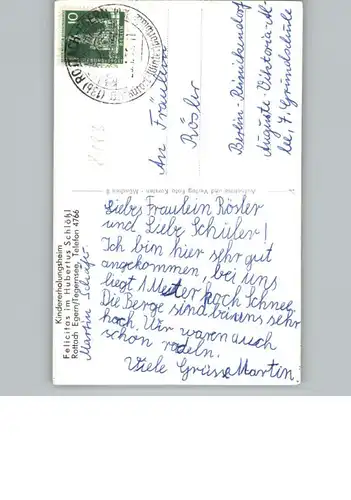 Liebe Fräulein Rösler
und Liebe Schüler!
Ich bin hier sehr gut
angekommen, bei uns
liegt 1 Meter hoch Schnee.
Die Berge sind sehr
hoch. Wir waren auch
schon rodeln.
Viele Grüsse Martin.
An Fräulein
Rösler
Berlin-Reinickendorf
Auguste-Viktoria-Al-
lee, 7. Grundschule
Kindererholungsheim
Felicitas im Hubertus Schlößl
Rottach Egern/Tegernsee, Telefon 4766
Martin Schäfer
Aufnahme und Verlag Foto Kersten - München 8
10